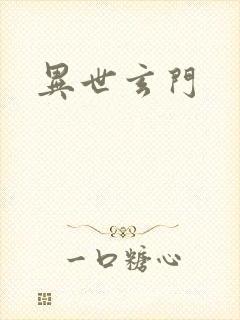 異世玄門
一口糖心